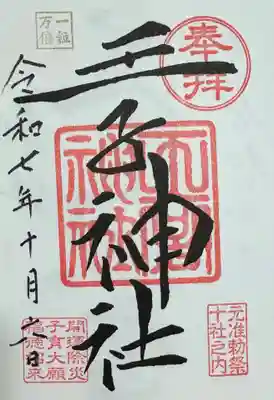 奉拝
元准勅祭
十社之内
王子神社
王子神社
一粒
万倍
令和七年十月六日
開運除災
子育大願
福徳招来